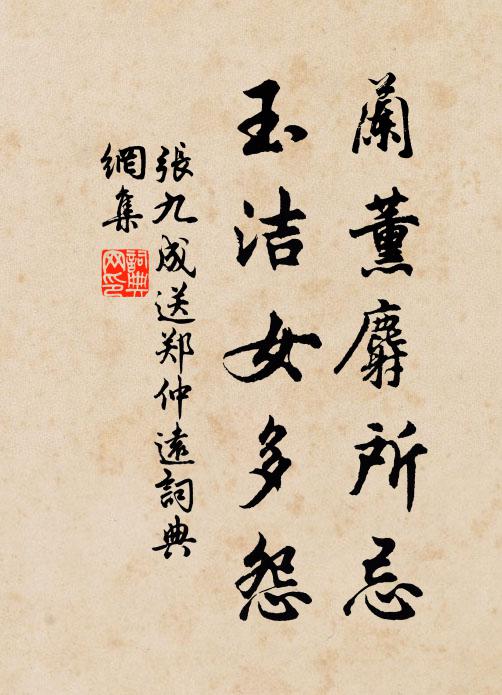 蘭薰麝所忌
玉洁女多怨
張九成送郑仲遠詞典
網集
詞典網印